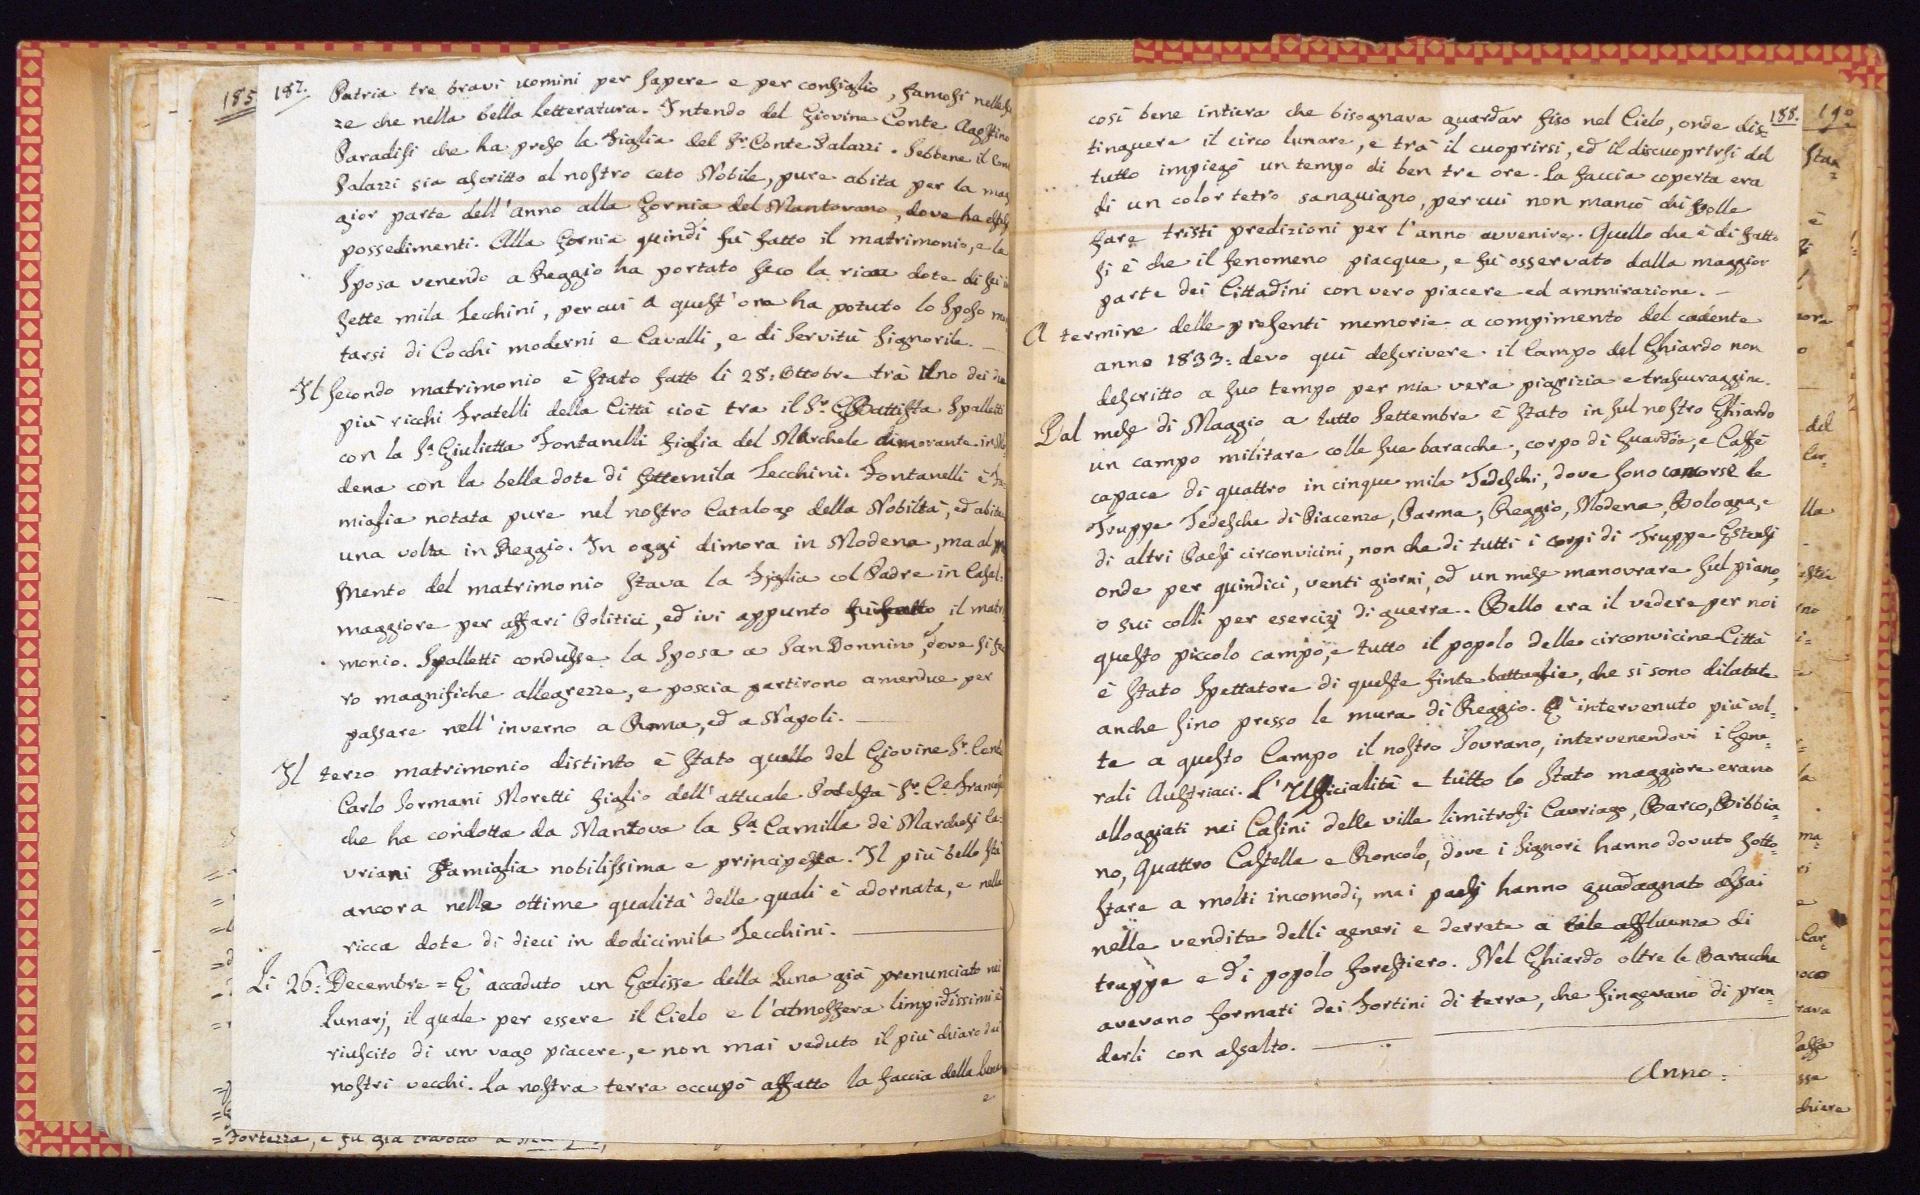 185 187.
Patria tre bravi uomini per sapere e per consiglio, famosi nelle
ze che nella bella letteratura. Intendo del Giovine Conte Agostino
Paradisi che ha preso la Figlia del Sr. Conte Palazzi. Sebbene il Con
Palazzi sia ascritto al nostro ceto Nobile, pure abita per la mag
gior parte dell'anno alla Gornia del Mantovano, dove ha
possedimenti. Alla Gornia quindi fù fatto il matrimonio, e la
Sposa venendo a Reggio ha portato seco la ricca dote di sei in
sette mila Zecchini, per cui a quest'ora ha potuto lo Sposo
tarsi di Cocchi moderni e Cavalli, e di Servitù Signorile. —
Il secondo matrimonio è stato fatto li 28: Ottobre trà uno dei due
più ricchi Fratelli della Città cioè tra il Sr. GBattista Spalletti
con la Sa. Giulietta Fontanelli figlia del Marchese dimorante in Mo
dena con la bella dote di settemila Zecchini. Fontanelli è Fa-
miglia notata pure nel nostro Catalogo della Nobiltà, ed abitava
una volta in Reggio. In oggi dimora in Modena, ma al
mento del matrimonio stava la Figlia col Padre in Casal-
maggiore per affari Politici, ed ivi appunto fù fatto il matri
monio. Spalletti condusse la Sposa a San Donnino, dove si fe
ro magnifiche allegrezze, e poscia partirono amendue per
passare nell'inverno a Roma, ed a Napoli. —
Il terzo matrimonio distinto è stato quello del Giovine Sr. Conte
Carlo Sormani Moretti figlio dell'attuale Podestà Sr. Ce.
che ha condotta da Mantova la Sa. Camilla de Marchesi Ca-
vriani Famiglia nobilissima e principesca. Il più bello stà
ancora nelle ottime qualità delle quali è adornata, e nella
ricca dote di dieci in dodicimila Zecchini. —
Li 26: Decembre = È accaduto un Ecclisse della Luna già prenunciato nei
Lunarj, il quale per essere il Cielo e l'atmosfera limpidissimi è
riuscito di un vago piacere, e non mai veduto il più chiaro dai
nostri vecchi. La nostra terra occupò affatto la faccia della Luna
e
Fortezza, e fu già
188. 190
così bene intiera che bisognava guardar fiso nel Cielo, onde dis-
tinguere il circo lunare, e trà il cuoprirsi, ed il discuoprirsi del
tutto impiegò un tempo di ben tre ore. La faccia coperta era
di un color tetro sanguigno, per cui non mancò chi volle
fare tristi predizioni per l'anno avvenire. Quello che è di fatto
si è che il fenomeno piacque, e fù osservato dalla maggior
parte dei Cittadini con vero piacere ed ammirazione. —
A termine delle presenti memorie a compimento del cadente
anno 1833: devo quì descrivere il Campo del Ghiardo non
descritto a suo tempo per mia vera pigrizia e trascuraggine.
Dal mese di Maggio a tutto Settembre è stato in sul nostro Ghiardo
un campo militare colle sue baracche, corpo di Guardia, e Caffè
capace di quattro in cinque mila Tedeschi, dove sono concorse le
Truppe Tedesche di Piacenza, Parma, Reggio, Modena, Bologna, e
di altri Paesi circonvicini, non che di tutti i corpi di Truppe Estensi
onde per quindici, venti giorni, od un mese manovrare sul piano,
o sui colli per esercizj di guerra. Bello era il vedere per noi
questo piccolo campo, e tutto il popolo delle circonvicine Città
è stato Spettatore di queste finte battaglie, che si sono dilatate
anche sino presso le mura di Reggio. È intervenuto più vol-
te a questo Campo il nostro Sovrano, intervenendovi i Gene-
rali Austriaci. L'Ufficialità e tutto lo Stato maggiore erano
alloggiati nei Casini delle ville limitrofi Cavriago, Barco, Bibbia-
no, Quattro Castella e Roncolo, dove i Signori hanno dovuto sotto-
stare a molti incomodi, ma i paesi hanno guadagnato assai
nelle vendite delli generi e derrate a tale affluenza di
truppe e di popolo forestiero. Nel Ghiardo oltre le Baracche
avevano formati dei Fortini di terra, che fingevano di pren-
derli con assalto. —
Anno.